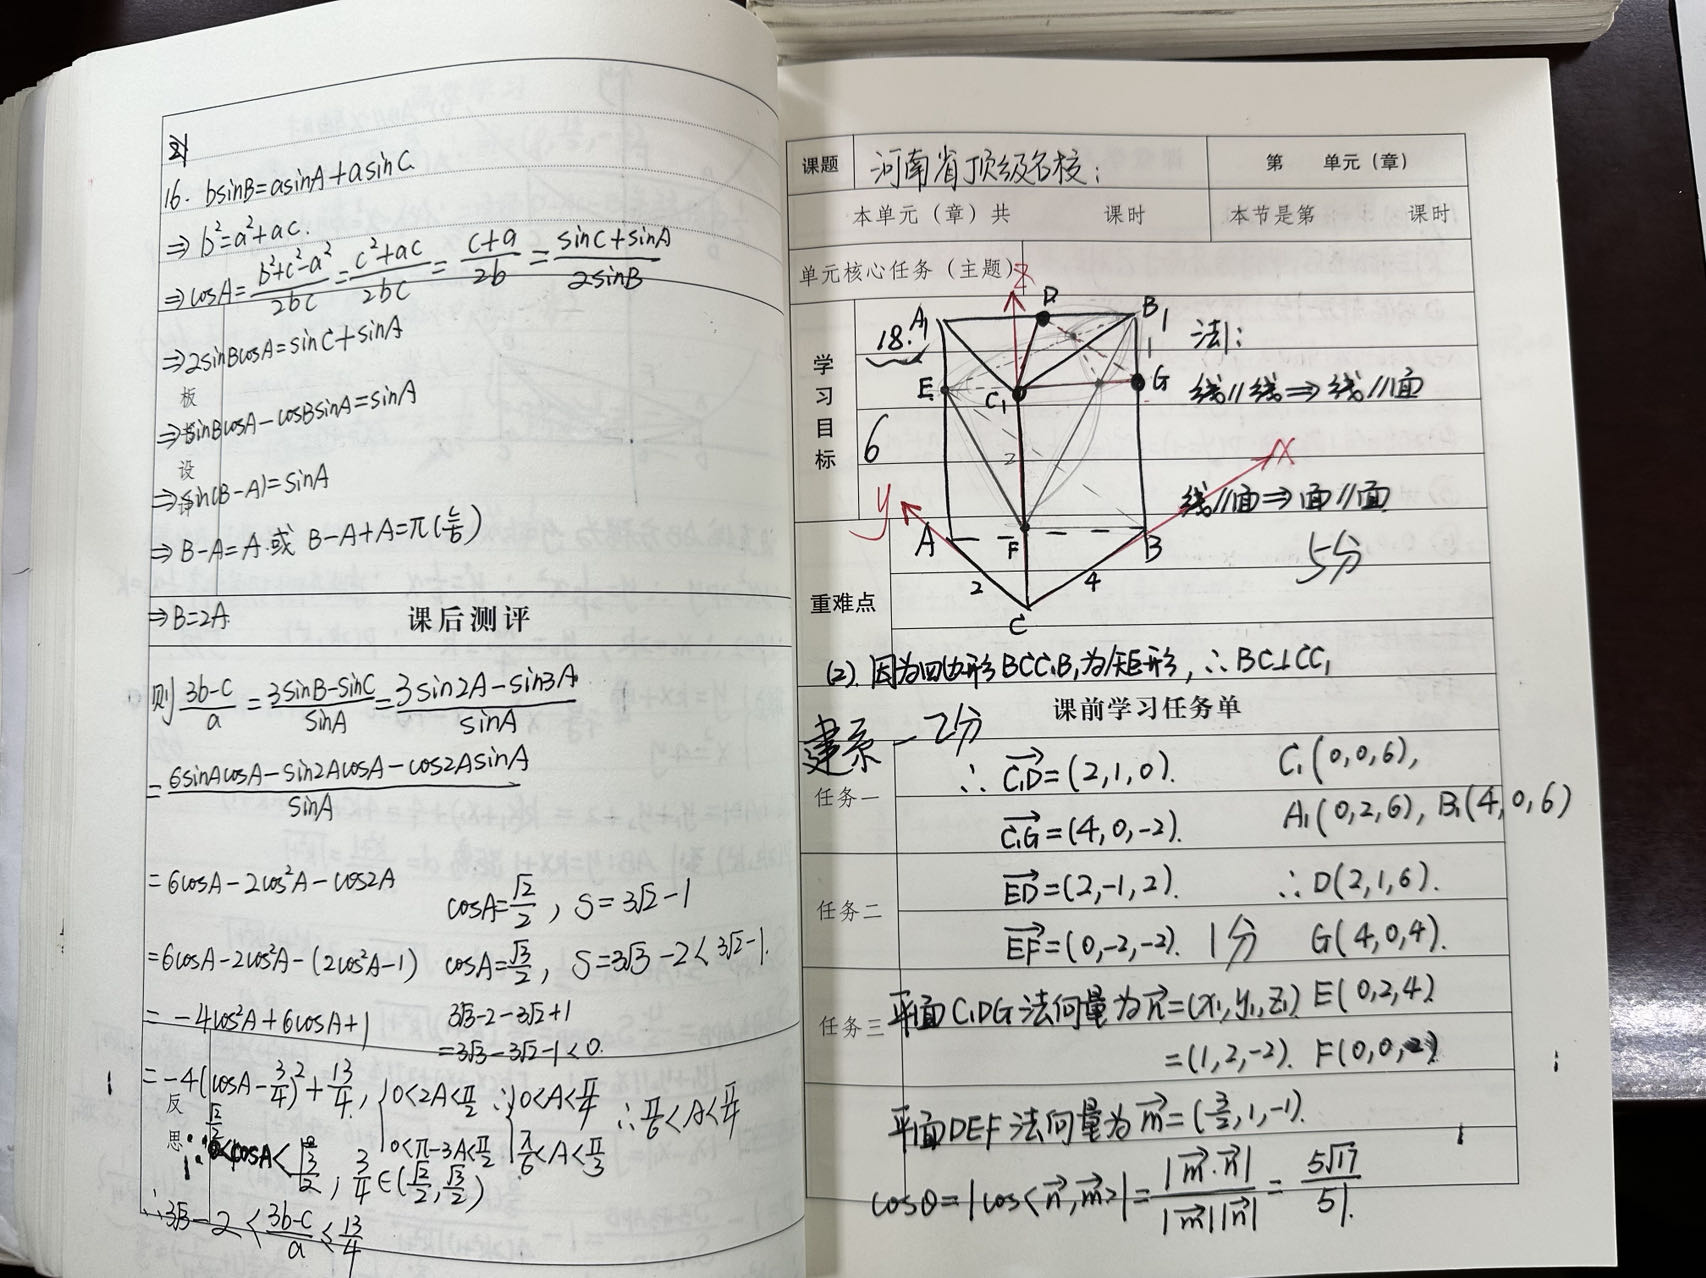 16. bsinB=asinA+asinC.
⇒ b²=a²+ac.
⇒ cosA=(b²+c²-a²)/2bc=(c²+ac)/2bc=(c+a)/2b=(sinC+sinA)/2sinB
⇒2sinBcosA=sinC+sinA
板
⇒sinBcosA-cosBsinA=sinA
设
⇒sin(B-A)=sinA
⇒ B-A=A.或 B-A+A=π(舍)
⇒B=2A.
课后测评
则 (3b-c)/a=(3sinB-sinC)/sinA=(3sin2A-sin3A)/sinA
=(6sinAcosA-sin2AcosA-cos2AsinA)/sinA
=6cosA-2cos²A-cos2A
cosA=√2/2, S=3√2-1
=6cosA-2cos²A-(2cos²A-1)
cosA=√3/2, S=3√3-2<3√2-1.
=-4cos²A+6cosA+1
3√3-2-3√2+1
=3√3-3√2-1<0.
=-4(cosA-3/4)²+13/4, {0<2A<π/2 0<π-3A<π/2 ∴{0<A<π/4 π/6<A<π/3 ∴π/6<A<π/4
反
思
√2/2<cosA<√3/2, 3/4∈(√2/2,√3/2)
∴3√3-2<(3b-c)/a≤13/4
课题 河南省顶级名校: 第 单元(章)
本单元(章)共 课时 本节是第 课时
单元核心任务(主题)
z
学习目标
18.
A₁ D B₁
法1:
E C₁ G
线//线⇒线//面
6
2
x
y
线//面⇒面//面
A F B
5分
2 4
重难点
C
(2). 因为四边形BCC₁B₁为矩形, ∴BC⊥CC₁
课前学习任务单
建系—2分
∴ C₁D=(2,1,0). C₁(0,0,6),
任务一
C₁G=(4,0,-2). A₁(0,2,6), B₁(4,0,6)
ED=(2,-1,2). ∴D(2,1,6).
任务二
EF=(0,-2,-2). 1分 G(4,0,4).
平面C₁DG法向量为n=(x₁,y₁,z₁) E(0,2,4)
任务三
=(1,2,-2). F(0,0,2)
平面DEF法向量为m=(3/2,1,-1).
cosθ=|cos<n,m>|=|m·n|/|m||n|=5√17/51.